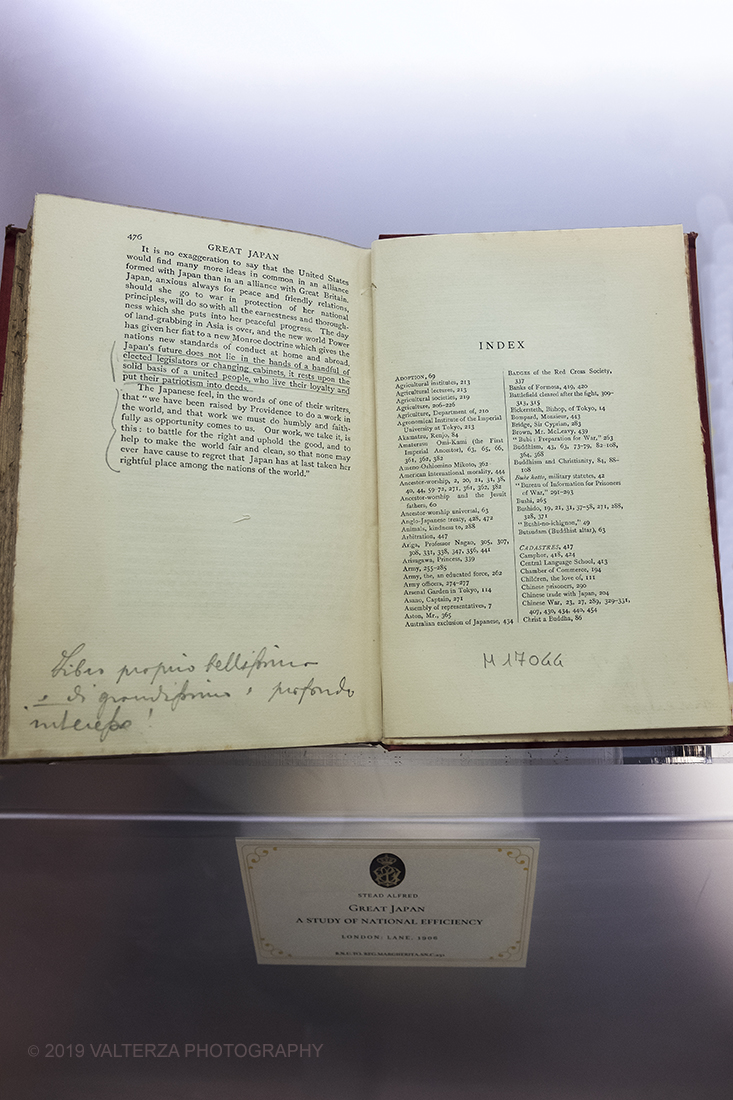 476
GREAT JAPAN
It is no exaggeration to say that the United States
would find many more ideas in common in an alliance
formed with Japan than in an alliance with Great Britain.
Japan, anxious always for peace and friendly relations,
should she go to war in protection of her national
principles, will do so with all the earnestness and thorough-
ness which she puts into her peaceful progress. The day
of land-grabbing in Asia is over, and the new world Power
has given her fiat to a new Monroe doctrine which gives the
nations new standards of conduct at home and abroad.
Japan's future does not lie in the hands of a handful of
elected legislators or changing cabinets, it rests upon the
solid basis of a united people, who live their loyalty and
put their patriotism into deeds.
The Japanese feel, in the words of one of their writers,
that "we have been raised by Providence to do a work in
the world, and that work we must do humbly and faith-
fully as opportunity comes to us. Our work, we take it, is
this: to battle for the right and uphold the good, and to
help to make the world fair and clean, so that none may
ever have cause to regret that Japan has at last taken her
rightful place among the nations of the world."
Libro proprio bellissimo
e di grandissimo e profondo
interesse!
INDEX
ADOPTION, 69
Agricultural institutes, 213
Agricultural lectures, 213
Agricultural societies, 219
Agriculture, 206-226
Agriculture, Department of, 210
Agronomical Institute of the Imperial
University at Tokyo, 213
Akamatsu, Renjo, 84
Amaterasu Omi-Kami (the First
Imperial Ancestor), 63, 65, 66,
361, 362, 382
Ameno-Oshiomino Mikoto, 362
American international morality, 444
Ancestor-worship, 2, 20, 21, 31, 38,
40, 44, 59-72, 271, 361, 362, 382
Ancestor-worship and the Jesuit
fathers, 60
Ancestor-worship universal, 63
Anglo-Japanese treaty, 428, 472
Animals, kindness to, 288
Arbitration, 447
Ariga, Professor Nagao, 305, 307,
308, 331, 338, 347, 356, 441
Arisugawa, Princess, 339
Army, 255-285
Army, the, an educated force, 262
Army officers, 274-277
Arsenal Garden in Tokyo, 114
Asano, Captain, 271
Assembly of representatives, 7
Aston, Mr., 365
Australian exclusion of Japanese, 434
BADGES of the Red Cross Society,
337
Banks of Formosa, 419, 420
Battlefield cleaned after the fight, 309-
313, 315
Bickersteth, Bishop, of Tokyo, 14
Bompard, Monsieur, 443
Bridge, Sir Cyprian, 283
Brown, Mr. McLeavy, 439
"Bubi: Preparation for War," 263
Buddhism, 43, 63, 73-79, 82-108,
364, 368
Buddhism and Christianity, 84, 88-
108
Buke hatto, military statutes, 42
"Bureau of Information for Prisoners
of War," 291-293
Bushi, 265
Bushido, 19, 21, 31, 37-58, 271, 288,
328, 371
"Bushi-no-ichigon," 49
Butsudam (Buddhist altar), 63
CADASTRES, 417
Camphor, 418, 424
Central Language School, 413
Chamber of Commerce, 194
Children, the love of, 111
Chinese prisoners, 290
Chinese trade with Japan, 204
Chinese War, 23, 27, 289, 329-331,
407, 430, 434, 440, 454
Christ a Buddha, 86
M 17044
STEAD ALFRED
GREAT JAPAN
A STUDY OF NATIONAL EFFICIENCY
LONDON: LANE, 1906
© 2019 VALTERZA PHOTOGRAPHY